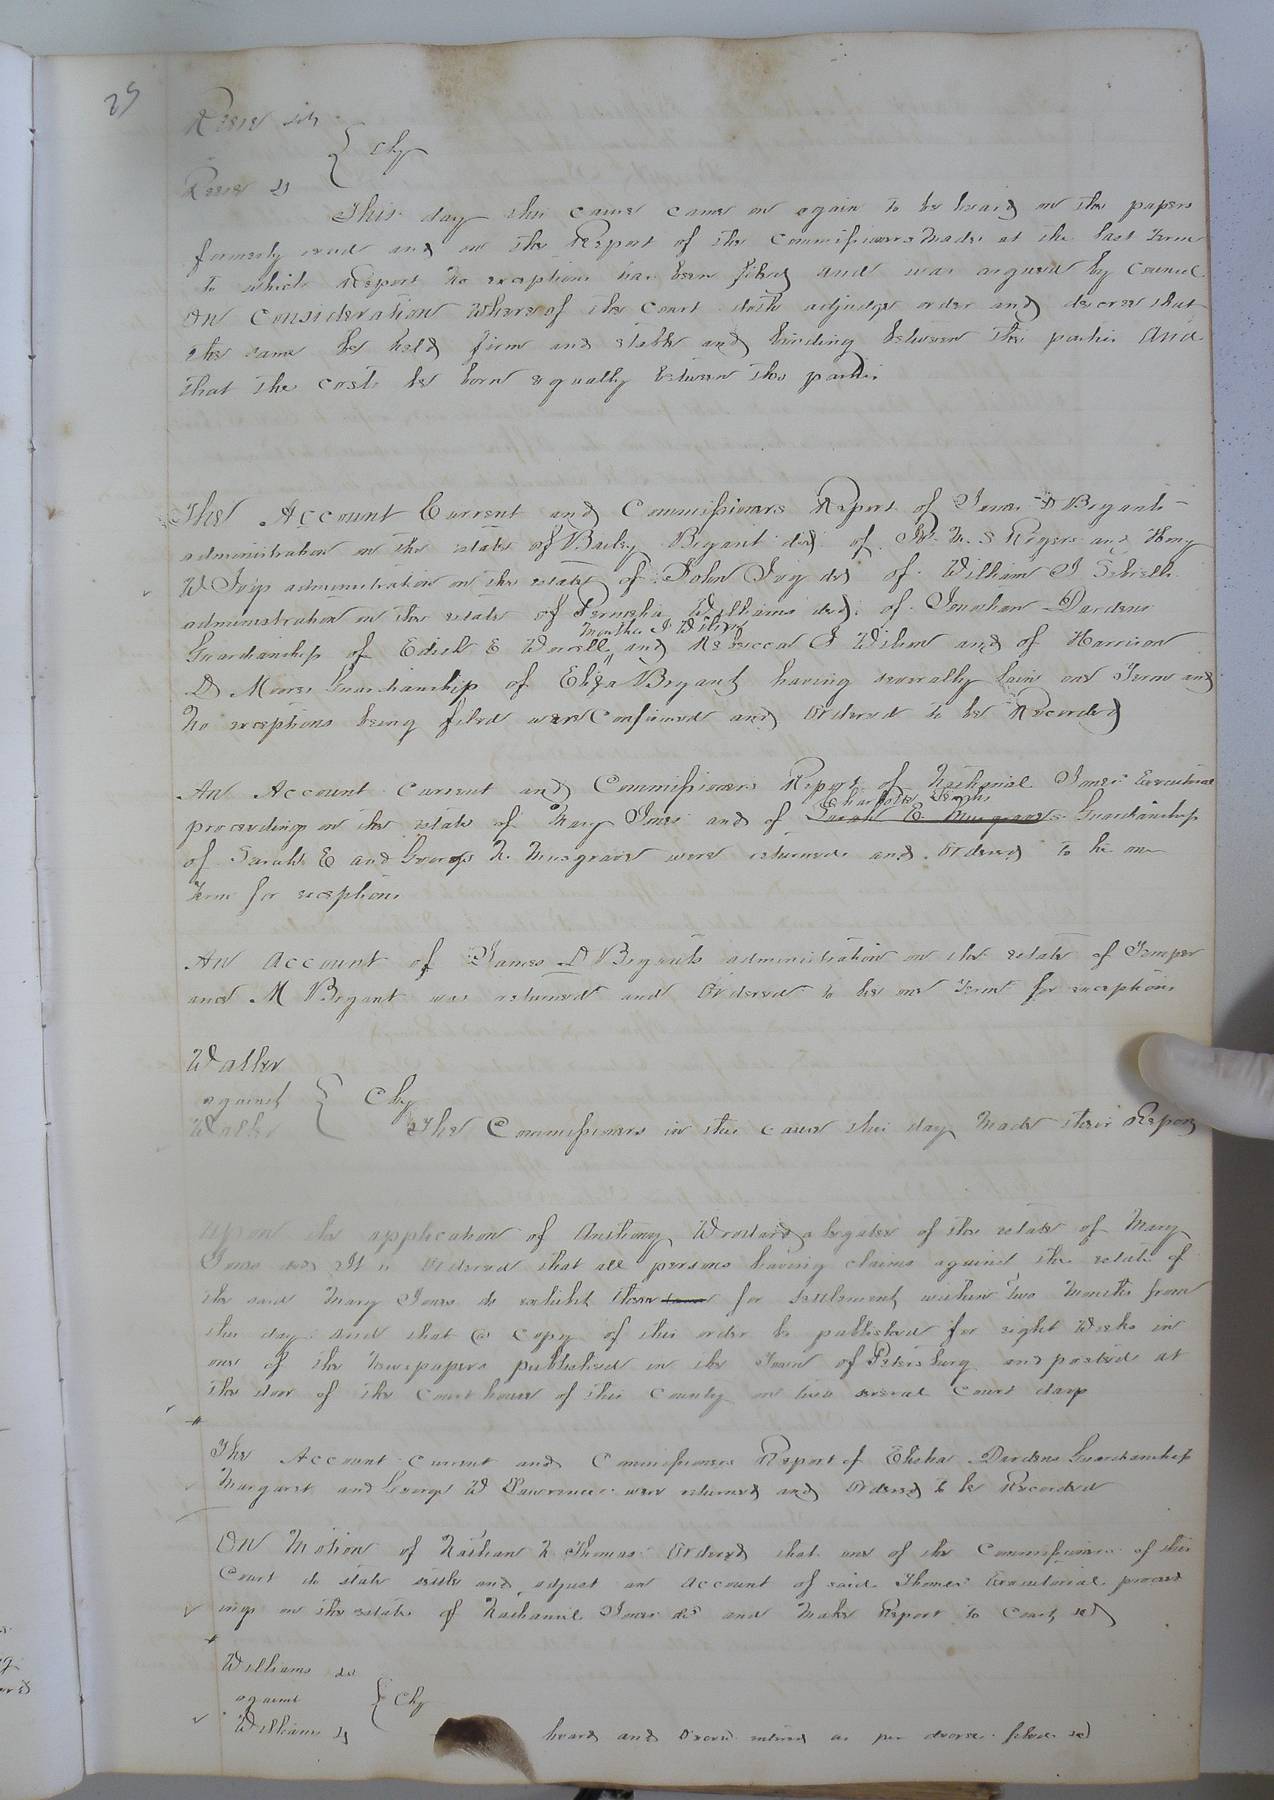 25
Reese
Chy
Reese
This day this cause came on again to be heard on the papers
formerly read and on the Report of the Commissioners made at the last Term
to which Report no exceptions has been filed and was argued by Council
On Consideration whereof the Court doth adjudge order and decree that
the same be held firm and stable and binding between the parties and
that the costs be born equally between the parties
The Account Current and Commissioners Report of James D Bryants
administration on the estate of Bailey Bryant decd. of S. Rogers and
W Ivy administration on the estate of John Ivy dec of William J Sebrell
administration on the estate of Williams decd. of Jonathan Dardens
Martha J Wilson
Guardianship of Edith E Worrell, and Rebecca J Wilson and of Harrison
D Moores Guardianship of Eliza Bryant having severally lain one Term and
no exceptions being filed were Confirmed and Ordered to be Recorded
An Account Current and Commissioners Report of Nathaniel Jones Executorial
Charlotte
proceedings on the estate of Mary Jones and of Sarah E Musgraves Guardianship
of Sarah E and George N. Musgrave were returned and Ordered to lie one
Term for exceptions
An Account of James D Bryants administration on the estate of Temper
ance M Bryant was returned and Ordered to lie one Term for exceptions
Waller
against
Chy
Waller
The Commissioners in this cause this day made their Report
Upon the application of Anthony a legatee of the estate of Mary
Jones decd It is Ordered that all persons having claims against the estate of
the said Mary Jones do exhibit them for settlement within two months from
this day and that a Copy of this order be published for eight weeks in
one of the Newspapers published in the Town of Petersburg and posted at
the door of the Court house of this County on two several Court days
The Account Current and Commissioners Report of Elisha Dardens Guardianship
Margaret and George W Lawrence were returned and Ordered to be Recorded
On Motion of Nathan N Thomas Ordered that one of the Commissioners of this
Court do state settle and adjust an account of said Thomas Executorial proceed
ings on the estate of Nathaniel Jones decd and make Report to Court
Williams
against
Chy
Williams
heard and Decree entered as per decree filed